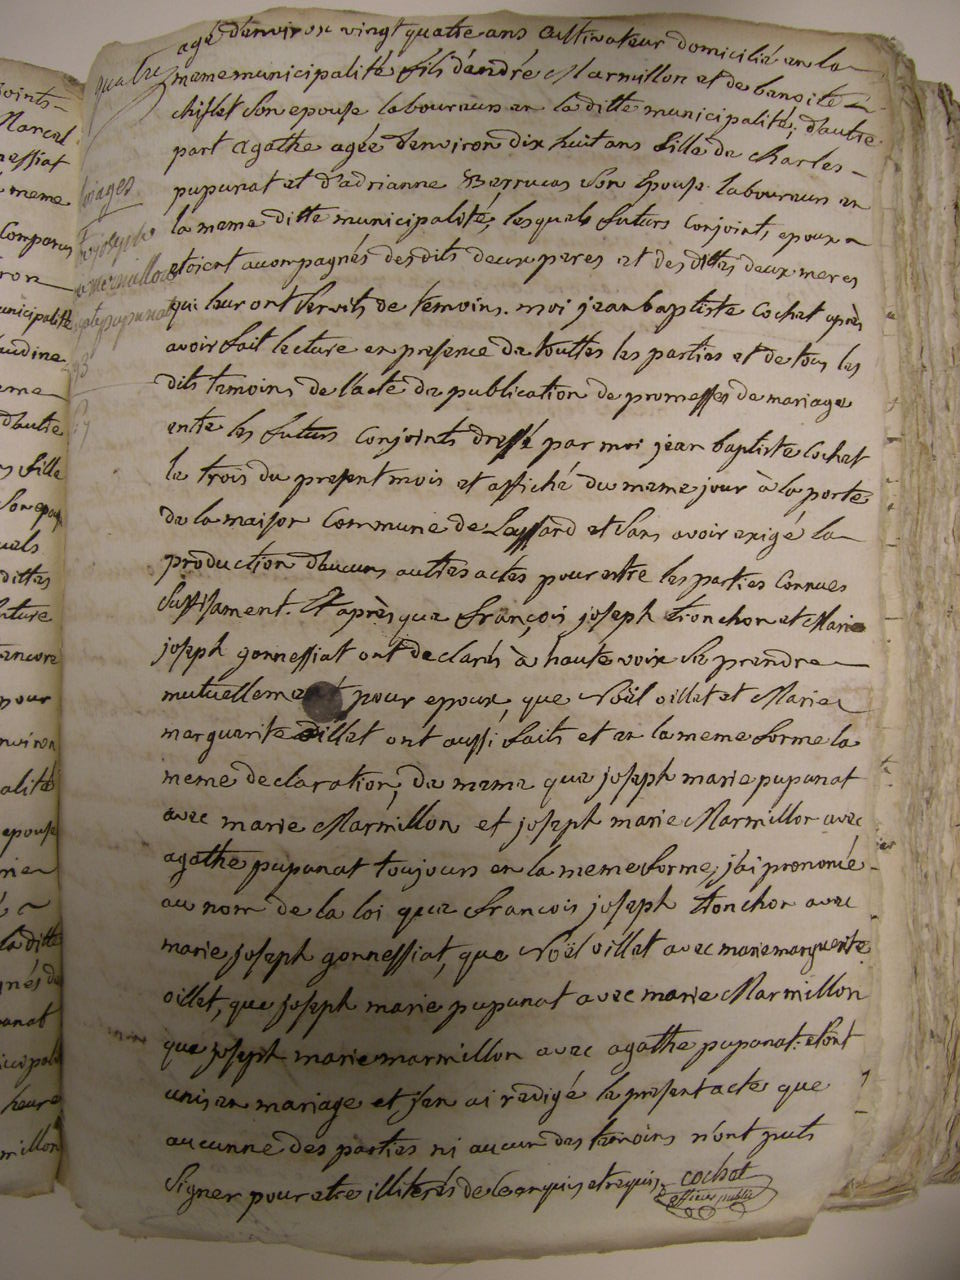 quatre
agé d'environ vingt quatre ans cultivateur domicilié en la
meme municipalité fils d'andré Marmillon et de benoite
chiflet son epouse laboureurs en la ditte municipalité; d'autre
part agathe agée d'environ dix huit ans fille de charles
pupunat et d'adrianne Berrucas son Epouse laboureurs en
la meme ditte municipalité, lesquels futurs Conjoints epoux
etoient acompagnés desdits deux peres et des dittes deux meres
qui leur ont servits de temoins. moi jean baptiste Cochet après
avoir fait lecture en presence de touttes les parties et de tous les
dits temoins de l'acte de publication de promesses de mariage
entre les futurs Conjoints dressé par moi jean baptiste Cochet
le trois du present mois et affiché du meme jour à la porte
de la maison Commune de Leyssard et sans avoir exigé la
production d'aucuns autres actes pour estre les parties Connues
suffisament. Et après que françois joseph tronchon et Marie
joseph gonnessiat ont declarés à haute voix se prendre
mutuellement pour epoux, que Noël oillet et Marie
marguerite oillet ont aussi faits et en la meme forme la
meme declaration, de meme que joseph marie pupunat
avec marie Marmillon et joseph marie Marmillon avec
agathe pupunat toujours en la meme forme, j'ai prononcé
au nom de la loi que francois joseph tronchon avec
marie joseph gonnessiat, que Noël oillet avec marie marguerite
oillet, que joseph marie pupunat avec marie Marmillon
que joseph marie marmillon avec agathe pupunat. sont
unis en mariage et j'en ai redigé le present acte que
aucunne des parties ni aucun des temoins n'ont puts
signer pour etre illiterés de ce enquis et requis. cochet
officier public